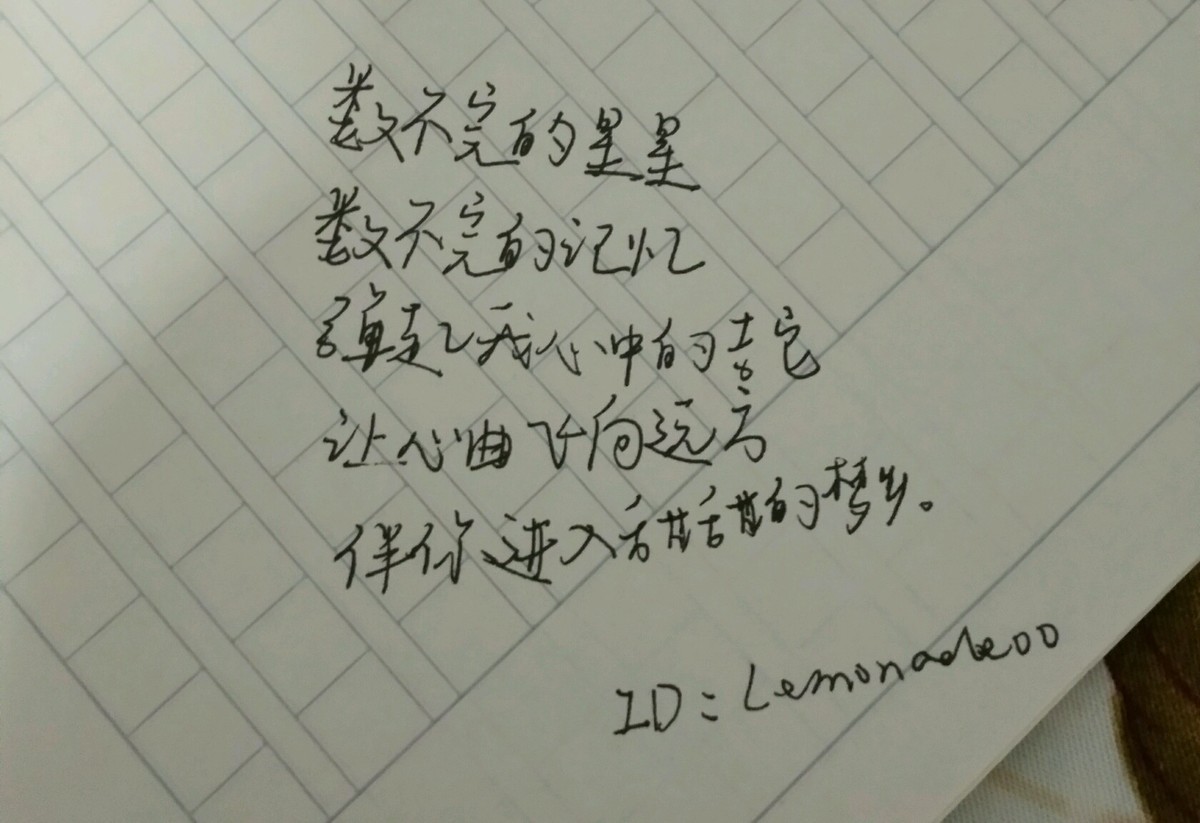 数不完的星星
数不完的记忆
弹起我心中的吉它
让心曲飞向远方
伴你进入甜甜的梦乡。
ID：Lemonadeoo